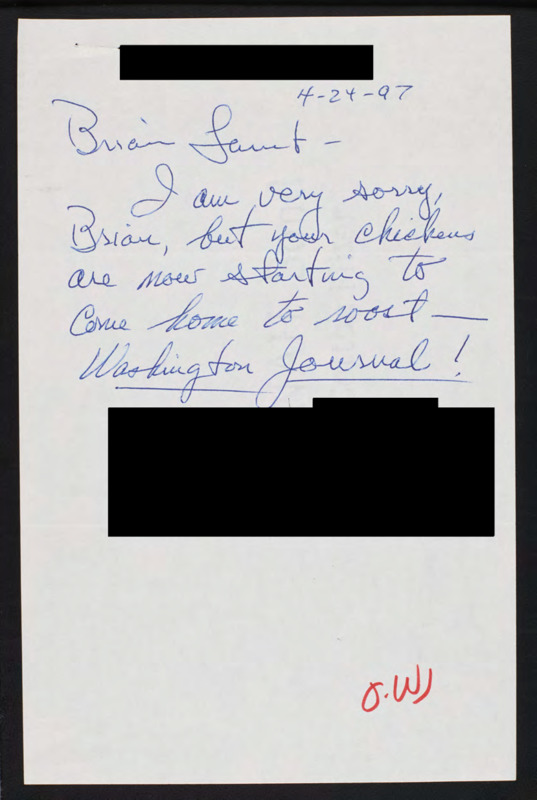 4-24-97
Brian Lamb -
I am very sorry,
Brian, but your chickens
are now starting to
come home to roost —
Washington Journal!